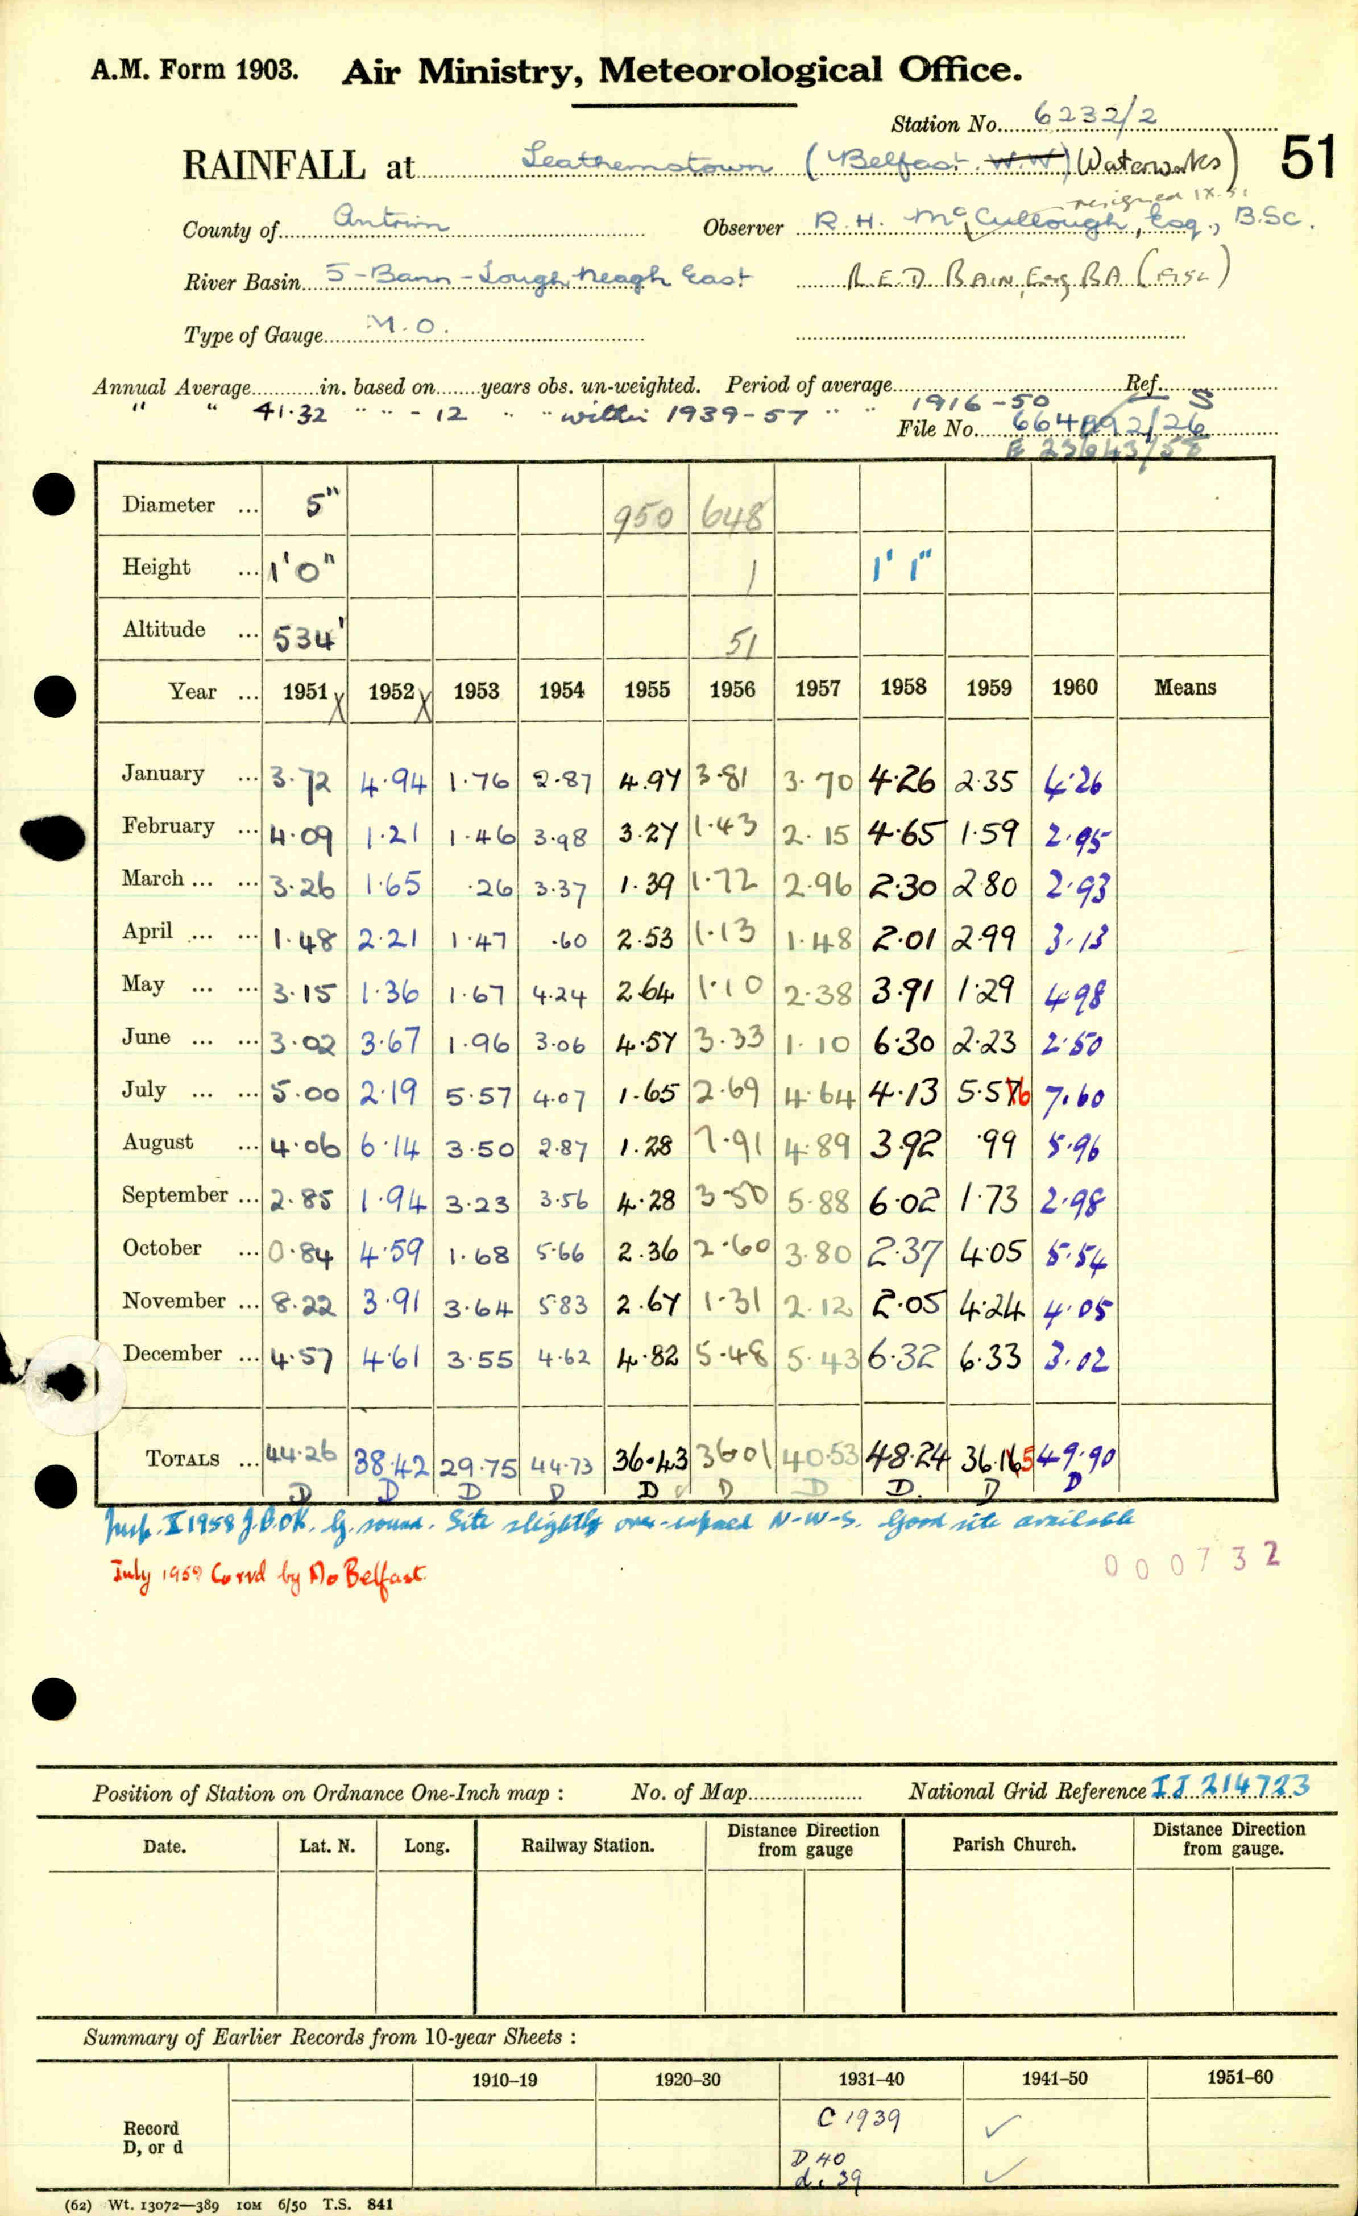 A.M. Form 1903. Air Ministry, Meteorological Office.
Station No. 6232/2
RAINFALL at Leathemstown (Belfast W.W) (Waterworks) 51
resigned IX.51
County of Antrim Observer R.H. McCullough, Esq., B.Sc.
River Basin 5-Bann-Lough Neagh East R.E.D BAIN, Esq BA (FISC)
Type of Gauge M.O.
Annual Average in. based on years obs. un-weighted. Period of average Ref.
" " 41·32 " " - 12 " " within 1939-57 " " 1916-50 S
File No. 664892/26
E 23643/58
Diameter ... 5" 950 648
Height ... 1'0" 1 1' 1"
Altitude ... 534' 51
Year ... 1951 X 1952 X 1953 1954 1955 1956 1957 1958 1959 1960 Means
January ... 3·72 4·94 1·76 2·87 4.97 3·81 3·70 4·26 2·35 4·26
February ... 4·09 1·21 1·46 3·98 3·27 1·43 2·15 4·65 1·59 2·95
March ... ... 3·26 1·65 ·26 3·37 1·39 1·72 2·96 2·30 2·80 2·93
April ... ... 1·48 2·21 1·47 ·60 2·53 1·13 1·48 2·01 2·99 3·13
May ... ... 3·15 1·36 1·67 4·24 2·64 1·10 2·38 3·91 1·29 4·98
June ... ... 3·02 3·67 1·96 3·06 4·57 3·33 1·10 6·30 2·23 2·50
July ... ... 5·00 2·19 5·57 4·07 1·65 2·69 4·64 4·13 5·576 7·60
August ... 4·06 6·14 3·50 2·87 1·28 7·91 4·89 3·92 ·99 5·96
September ... 2·85 1·94 3·23 3·56 4·28 3·50 5·88 6·02 1·73 2·98
October ... 0·84 4·59 1·68 5·66 2·36 2·60 3·80 2·37 4·05 5·54
November ... 8·22 3·91 3·64 5·83 2·67 1·31 2·12 2·05 4·24 4·05
December ... 4·57 4·61 3·55 4·62 4·82 5·48 5·43 6·32 6·33 3·02
TOTALS ... 44·26 38·42 29·75 44·73 36·43 36·01 40·53 48·24 36.165 49·90
D D D D D D D D. D D
Insp. X 1958 J.G.OK. G. sound. Site slightly over-exposed N-W-S. Good site available
July 1959 Corrd by Mo Belfast.
000732
Position of Station on Ordnance One-Inch map : No. of Map National Grid Reference IJ 214723
Date. Lat. N. Long. Railway Station. Distance from Direction gauge Parish Church. Distance from Direction gauge.
Summary of Earlier Records from 10-year Sheets :
1910–19 1920–30 1931–40 1941–50 1951–60
Record
D, or d
C 1939
D 40
d. 39
(62) Wt. 13072—389 10M 6/50 T.S. 841